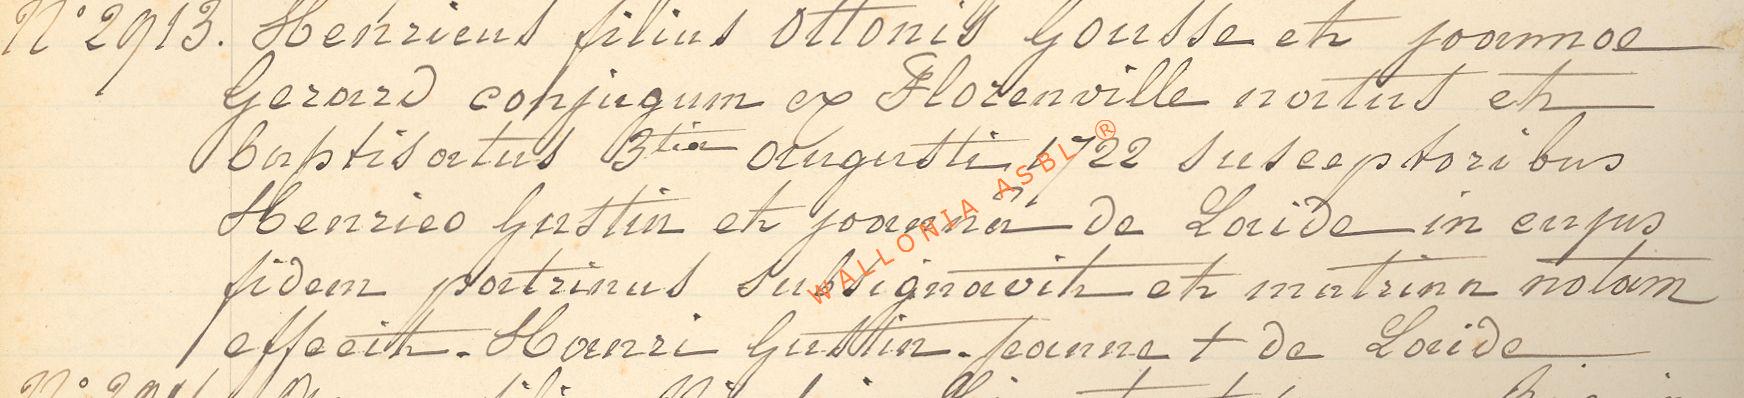 N° 2913. Henricus filius Ottonis Gousse et joannoe
Gerard conjugum ex Florenville natus et
baptisatus 3tia Augusti 1722 susceptoribus
Henrico Gustin et joannâ de Laide in cujus
fidem patrinus subsignavit et matrina notam
effecit. Hanri Gustin. jeanne + de Laide
N°
WALLONIA ASBL®